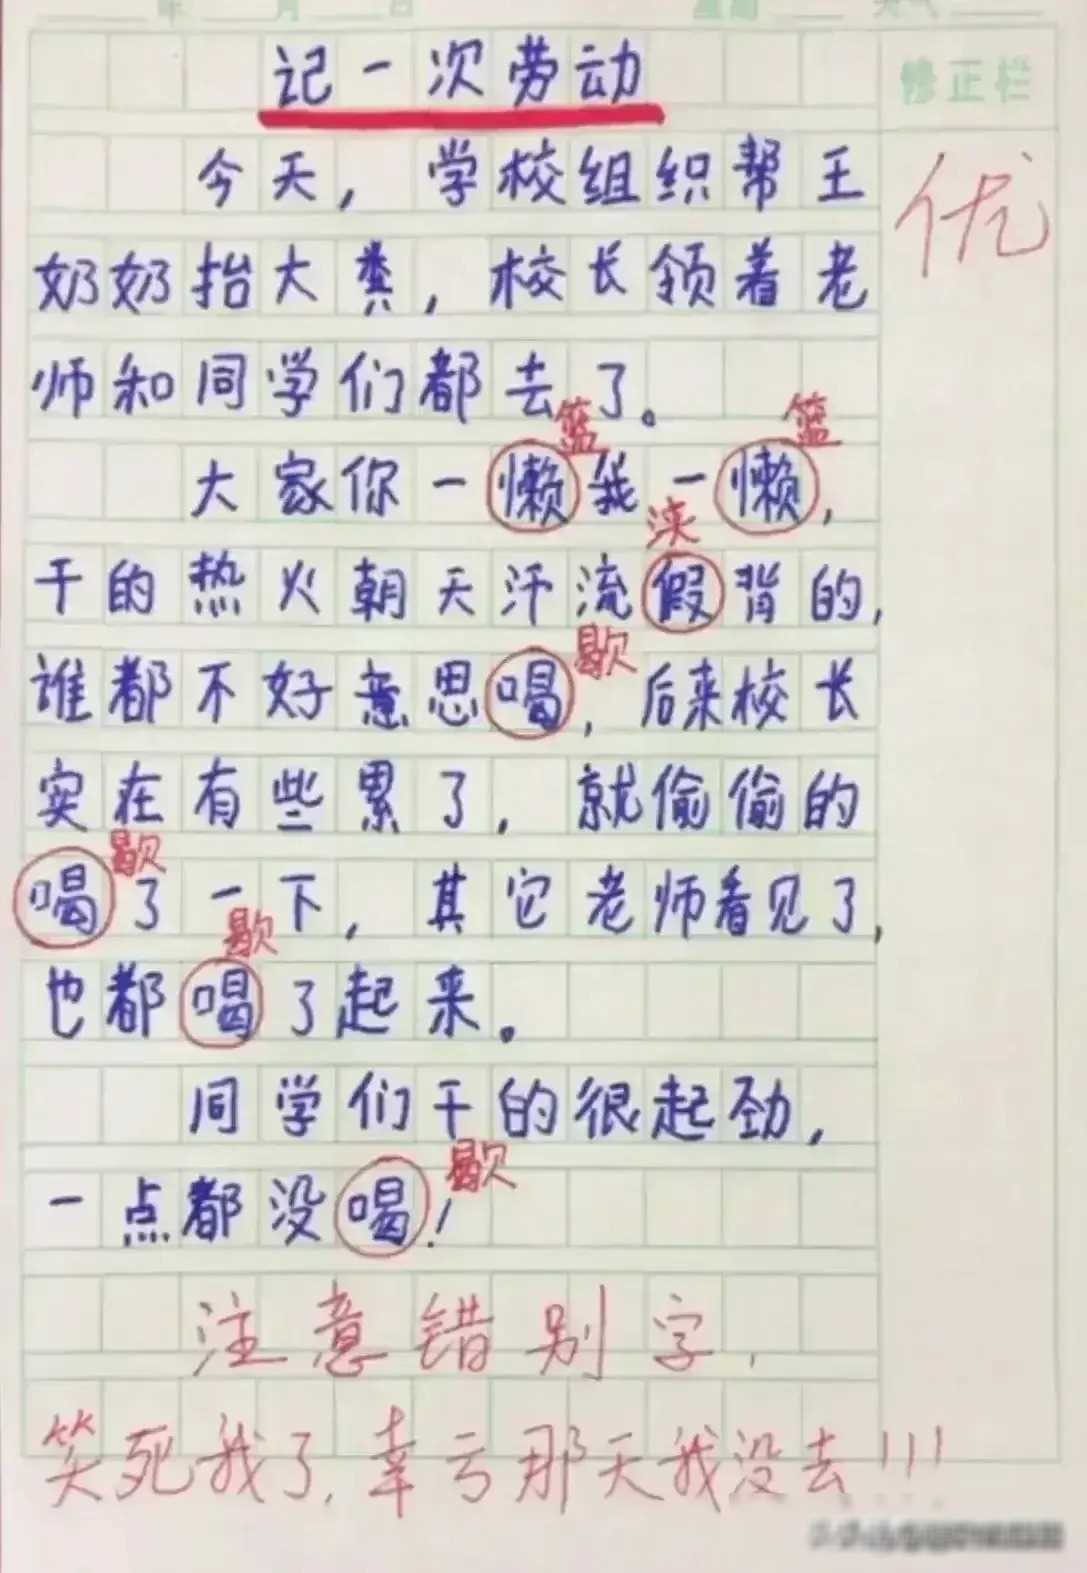 记一次劳动
修正栏
今天，学校组织帮王
优
奶奶抬大粪，校长领着老
师和同学们都去了。
篮 篮
大家你一懒我一懒，
浃
干的热火朝天汗流假背的，
歇
谁都不好意思喝，后来校长
实在有些累了，就偷偷的
歇
喝了一下，其它老师看见了，
歇
也都喝了起来。
同学们干的很起劲，
歇
一点都没喝！
注意错别字，
笑死我了，幸亏那天我没去！！！